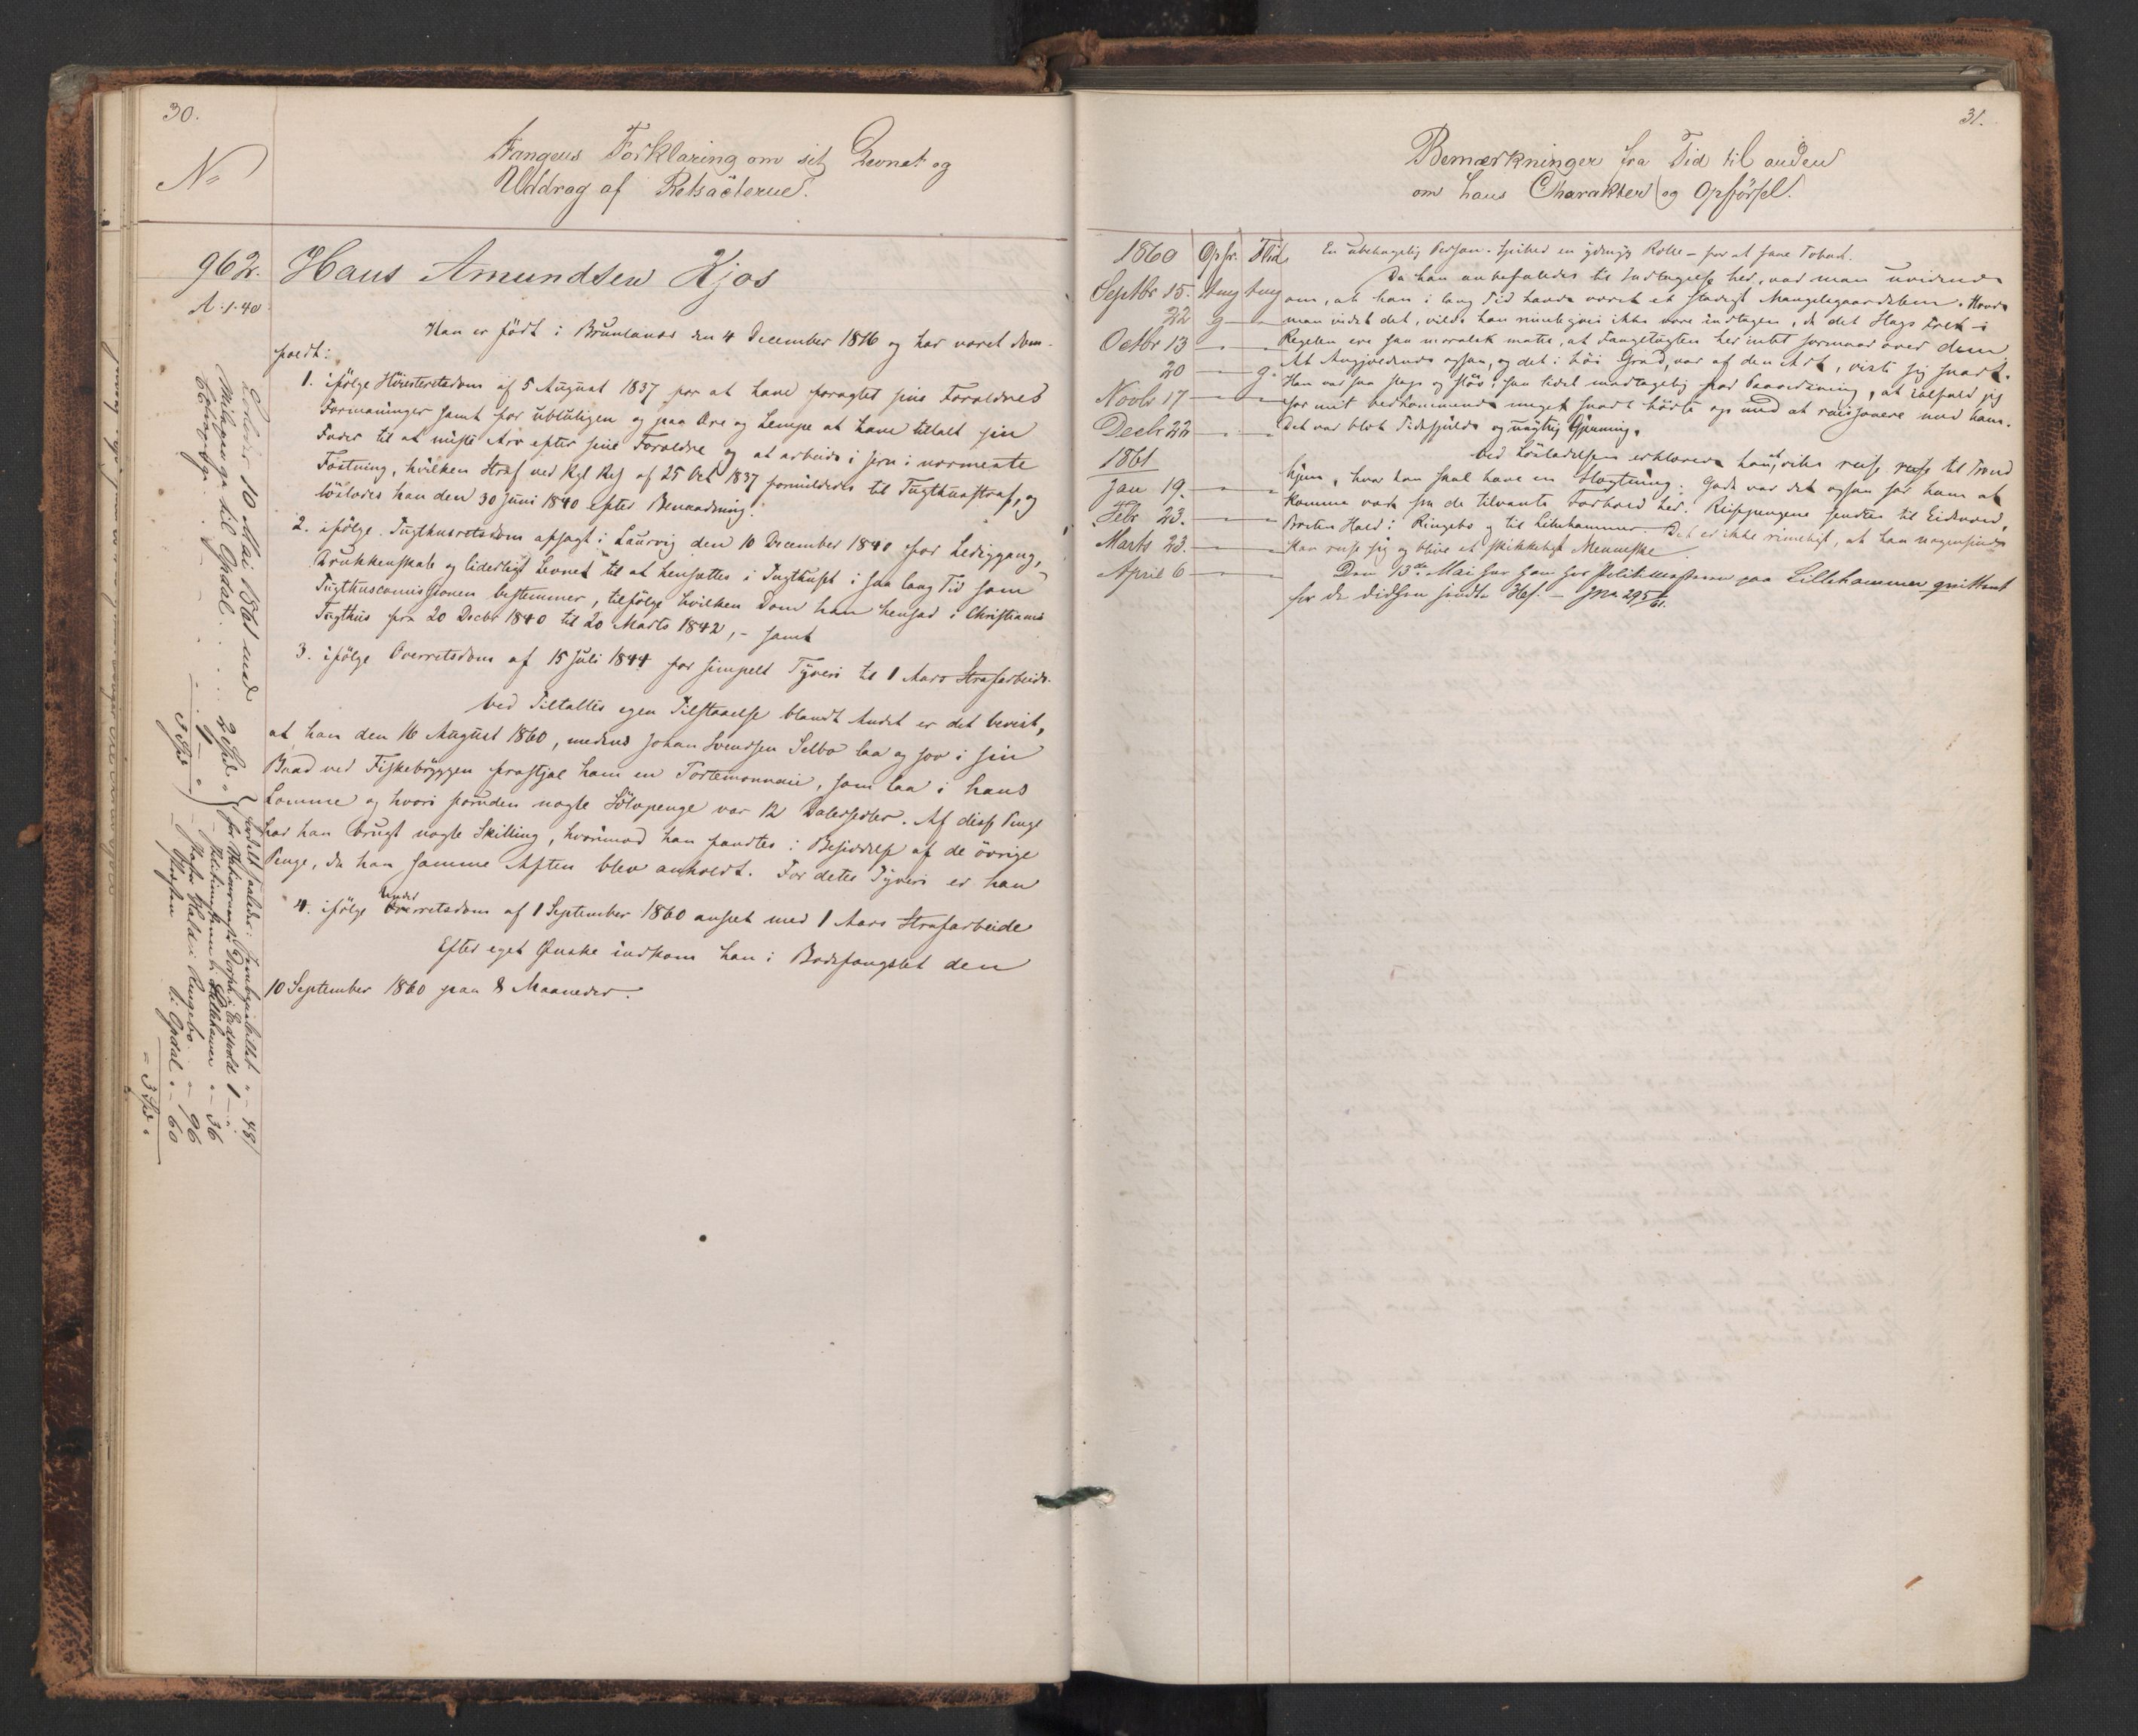 30.
No
Fangens Forklaring om sit Levnet og
Uddrag af Retsacterne.
962.
A. 1. 40
Hans Amundsen Kjos
Han er född i Brunlanæs den 4 December 1816 og har været döm-
fældt:
1. ifölge Höiesteretsdom af 5 August 1837 for at have foragtet sine Forældres
Formaninger samt for ubluligen og paa Ære og Lempe at have tiltalt sin
Fader til at miste Arv efter sine Forældre og at arbeide i Jern i nærmeste
Fæstning, hvilken Straf ved Kgl Res af 25 Oct 1837 formildedes til Tugthusstraf, og
löslodes han den 30 Juni 1840 efter Benaadning.
2. ifölge Tugthusretsdom afsagt i Laurvig den 10 December 1840 for Lediggang,
Drukkenskab og liderligt Levnet til at hensættes i Tugthuset i saa lang Tid som
Tugthuscommissionen bestemmer, tilfölge hvilken Dom han hensad i Christiania
Tugthus fra 20 Decbr 1840 til 20 Marts 1842, - samt
3. ifölge Overretsdom af 15 Juli 1844 for simpelt Tyveri til 1 Aars Strafarbeide.
Ved Tiltaltes egen Tilstaaelse blandt Andet er det bevist,
at han den 16 August 1860, medens Johan Svendsen Selbo laa og sov i sin
Baad ved Fiskebryggen frastjal ham en Portemonnaie, som laa i hans
Lomme og hvori foruden nogle Sölvpenge var 12 Dalersedler. Af disse Penge
har han brugt nogle Skilling, hvorimod han fandtes i Besiddelse af de övrige
Penge, da han samme Aften blev anholdt. For dette Tyveri er han
4. ifölge Underretsdom af 1 September 1860 anseet med 1 Aars Strafarbeide
Efter eget Ønske indkom han i Bodsfængslet den
10 September 1860 paa 8 Maaneder.
Löslodes 10 Mai 1861 med
Milepenge til Opdal . . . 2 Spd "
5 Spd
fordelt saaledes: Jernbanebillet " - 48
i Eidsvold 1 -
Lillehammer " - 36
Hald i Ringebo " - 96
i Opdal " - 60
= 3 Spd "
31.
Bemærkninger fra Tid til anden
om hans Charakter og Opförsel.
1860 Opfr. Flid
Septbr 15. tmg tmg
22 g
Octbr 13
20 g
Novbr 17
Decbr 22
1861
Jan 19.
Febr 23.
Marts 23.
April 6
En ubehagelig Person. Spilled en ydmyg Rolle - for at faae Tobak.
Da han anbefaledes til Indtagelse her, var man uvidende
om, at han i lang Tid havde været et stadigt Mangelsgaardslem. Havde
man vidst det, vilde han rimeligvis ikke være indtagen, da det Slags Folk i
Regelen ere saa moralsk matte, at Fangetugten her intet formaar over dem.
At Angjældende ogsaa, og det i höi Grad, var af den Art, viste sig snart.
Han var saa slap og slöv, saa lidet modtagelig for Paavirkning, at ialfald jeg
for mit Vedkommende meget snart hörte op med at raisonere med ham.
Det var blot Tidsspilde og unyttig Gjerning.
Ved Lösladelsen erklærede han, at ville reise til Trond
hjem, hvor han skal have en Slægtning. Godt var det ogsaa for ham at
komme væk fra de tilvante Forhold her. Reisepengene sendtes til Eidsvold,
Hald i Ringebo og til Lillehammer Det er ikke rimeligt, at han nogensinde
kan reise sig og blive et skikkeligt Menneske
Den 13de Mai har han hos Politimesteren paa Lillehammer qvitteret
for de didsen sendte 36 s. - Jrn 295/61.